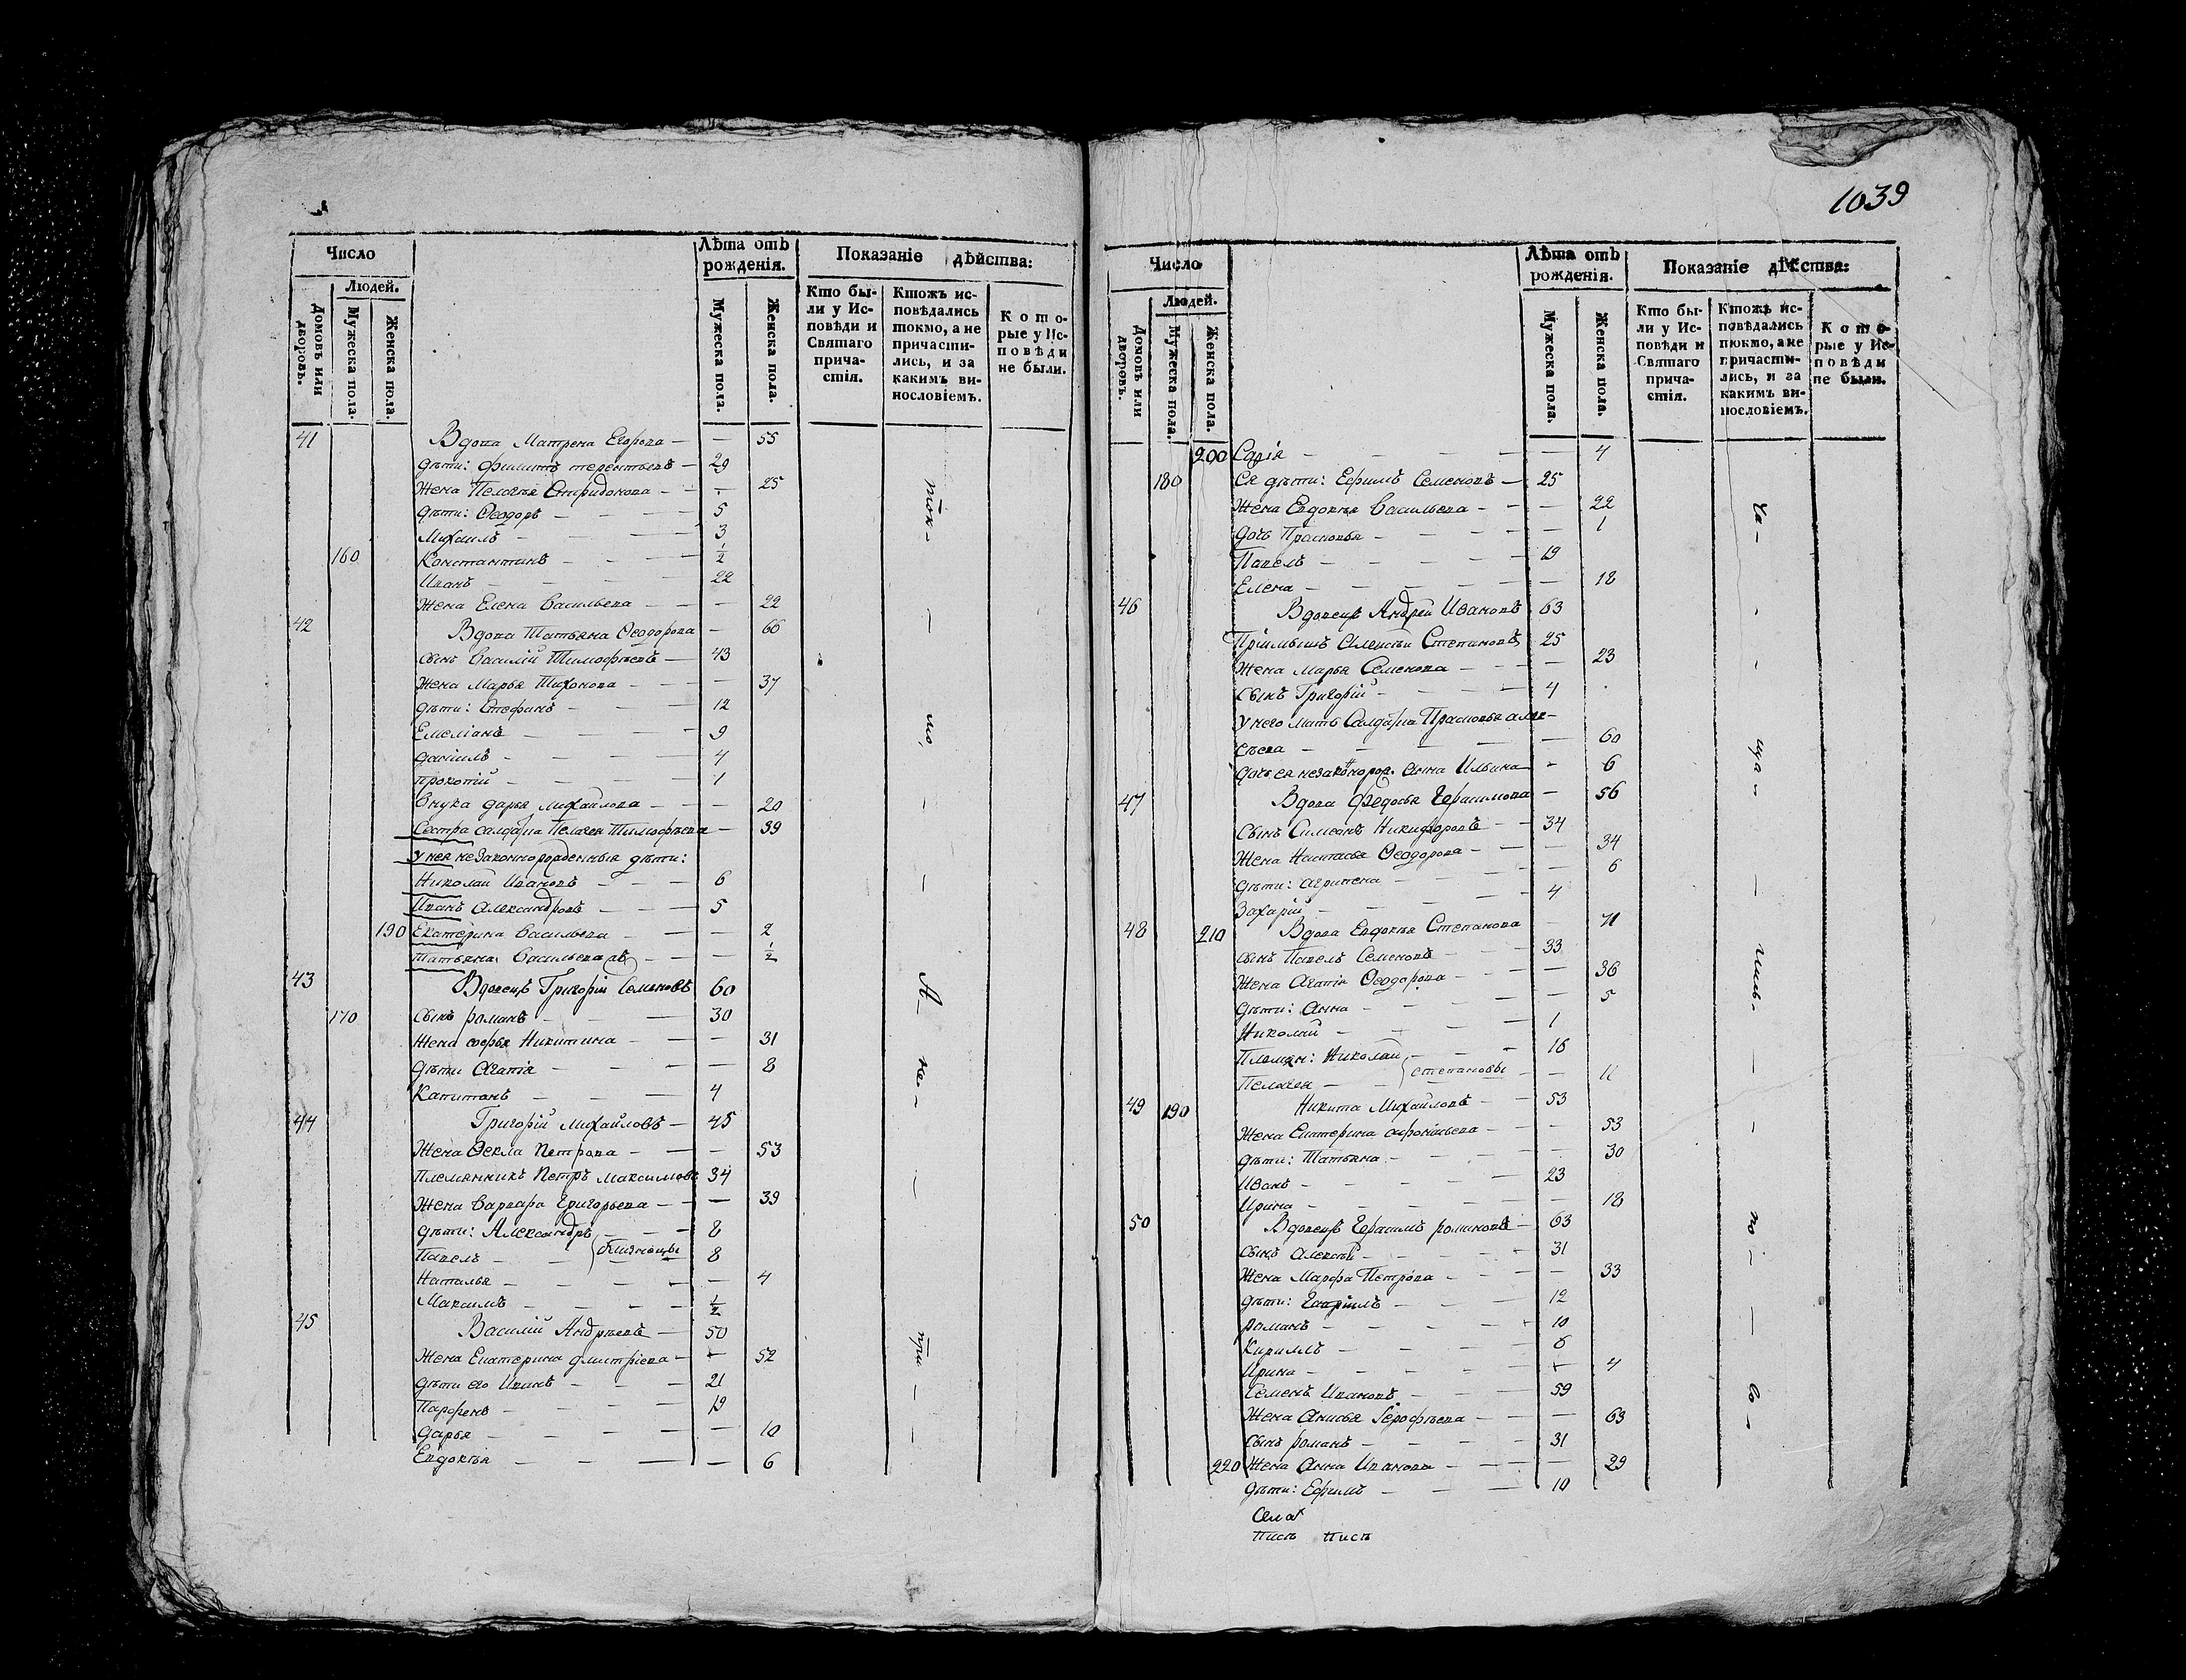 1039
Число
Людей.
Домовъ или дворовъ.
Мужеска пола.
Женска пола.
Лѣта отъ рожденія.
Мужеска пола.
Женска пола.
Показаніе дѣйства:
Кто бы-
ли у Ис-
повѣди и
Святаго
прича-
стія.
Ктожъ ис-
повѣдались
токмо, а не
причасти-
лись, и за
какимъ ви-
нословіемъ.
Кото-
рые у Ис-
повѣди
не были.
41 Вдова Матрена Егорова — — 55
дѣти: Филипъ терентьевъ — 29
Жена Пелагѣя Спиридонова — — 25
дѣти: Ѳеодоръ — — — 5
Михаилъ — — — 3
160 Константинъ — — — 1/2
Иванъ — — — 22
Жена Елена Васильева — — — 22
42 Вдова Татьяна Ѳеодорова — 66
сынъ Василій Тимофѣевъ — 43
Жена Марья Тихонова — — — 37
дѣти: Стефанъ — — — 12
Емеліанъ — — — 9
даніилъ — — — 4
прокопій — — — 1
Внука дарья михайлова — — — 20
Сестра салдатка Пелагея Тимофѣева — 39
у нея незаконнорожденныя дѣти:
Николай Ивановъ — — — 6
Иванъ Александровъ — — — 5
190 Екатерина Васильева — — — 2
Татьяна Васильева — — — 1/2
43 Вдовецъ Григорій Семеновъ 60
170 сынъ романъ — — — 30
Жена софья Никитина — — — 31
дѣти Агапія — — — 8
Капитонъ — — — 4
44 Григорій михайловъ — 45
Жена Ѳекла петрова — — — 53
племянникъ петръ максимовъ 34
Жена варвара григорьева — — 39
дѣти: Александръ — — 8
Павелъ — — близнецы — 8
Наталья — — — — 4
Максимъ — — — — 1/2
45 Василій Андрѣевъ — 50
Жена Екатерина дмитріева — — 52
дѣти его Иванъ — — — 21
Парфенъ — — — 19
дарья — — — — 10
Евдокѣя — — — — 6
ток-
мо,
А
не-
при
Число
Людей.
Домовъ или дворовъ.
Мужеска пола.
Женска пола.
Лѣта отъ рожденія.
Мужеска пола.
Женска пола.
Показаніе дѣйства:
Кто бы-
ли у Ис-
повѣди и
Святаго
прича-
стія.
Ктожъ ис-
повѣдались
токмо, а не
причасти-
лись, и за
какимъ ви-
нословіемъ.
Кото-
рые у Ис-
повѣди
не были.
200 — — — 4
180 Ея дѣти: Ефимъ Семеновъ — 25
Жена Евдокѣя Васильева — — — 22
дочь Прасковья — — — — 1
Павелъ — — — 19
Елена — — — — 18
46 Вдовецъ Андрей Ивановъ 63
Пріимышъ Алексѣй Степановъ 25
Жена Марья Семенова — — — 23
сынъ Григорій — — — 4
у него мать Салдатка Прасковья алек-
сѣева — — — — 60
дочь ея незаконнорож. Анна Ильина — 6
47 Вдова Федосья Герасимова — 56
Сынъ Симеонъ Никифоровъ — — 34
Жена Настасья Ѳеодорова — — — 34
дѣти: агрипена — — — — 6
Захарій — — — 4
48 210 Вдова Евдокѣя Степанова — 71
сынъ Павелъ Семеновъ — — 33
Жена Агапія Ѳеодорова — — — 36
дѣти: Анна — — — — 5
Николай — — — 1
Племян: Николай — — 16
степановы
Пелагея — — — —
49 190 Никита Михайловъ — — 53
Жена Екатерина — — — 53
дѣти: Татьяна — — — — 30
Иванъ — — — 23
Ирина — — — — 18
50 Вдовецъ Герасимъ романовъ — 63
сынъ Алексѣй — — — 31
Жена Марфа Петрова — — — 33
дѣти: Гавріилъ — — — 12
романъ — — — 10
Кирилъ — — — 6
Ирина — — — — 4
Семенъ Ивановъ — — — 59
Жена Анисья Ерофѣева — — — 63
сынъ романъ — — — 31
220 Жена Анна Иванова — — — 29
дѣти: Ефимъ — — — 10
писъ писъ
ча-
ща-
лись-
по-